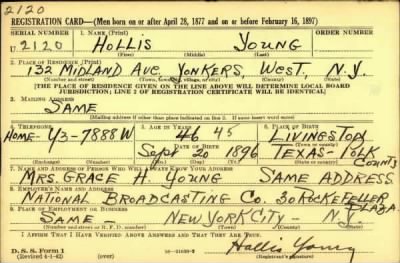 2120
REGISTRATION CARD—(Men born on or after April 28, 1877 and on or before February 16, 1897)
SERIAL NUMBER 1. NAME (Print) ORDER NUMBER
U 2120 HOLLIS YOUNG
(First) (Middle) (Last)
2. PLACE OF RESIDENCE (Print)
132 MIDLAND AVE, YONKERS, WEST, N.Y.
(Number and street) (Town, township, village, or city) (County) (State)
[THE PLACE OF RESIDENCE GIVEN ON THE LINE ABOVE WILL DETERMINE LOCAL BOARD
JURISDICTION; LINE 2 OF REGISTRATION CERTIFICATE WILL BE IDENTICAL]
3. MAILING ADDRESS
SAME
(Mailing address if other than place indicated on line 2. If same insert word same)
4. TELEPHONE 5. AGE IN YEARS 6. PLACE OF BIRTH
HOME - YO-3-7888W 46 45 LIVINGSTON
DATE OF BIRTH (Town or county)
SEPT 20 1896 TEXAS - POLK COUNTY
(Exchange) (Number) (Mo.) (Day) (Yr.) (State or country)
7. NAME AND ADDRESS OF PERSON WHO WILL ALWAYS KNOW YOUR ADDRESS
MRS. GRACE H. YOUNG SAME ADDRESS
8. EMPLOYER'S NAME AND ADDRESS
NATIONAL BROADCASTING CO. 30 ROCKEFELLER PLAZA
9. PLACE OF EMPLOYMENT OR BUSINESS
SAME - NEW YORK CITY - N.Y.
(Number and street or R. F. D. number) (Town) (County) (State)
I AFFIRM THAT I HAVE VERIFIED ABOVE ANSWERS AND THAT THEY ARE TRUE.
D. S. S. Form 1
(Revised 4-1-42) (over) Hollis Young
(Registrant's signature)